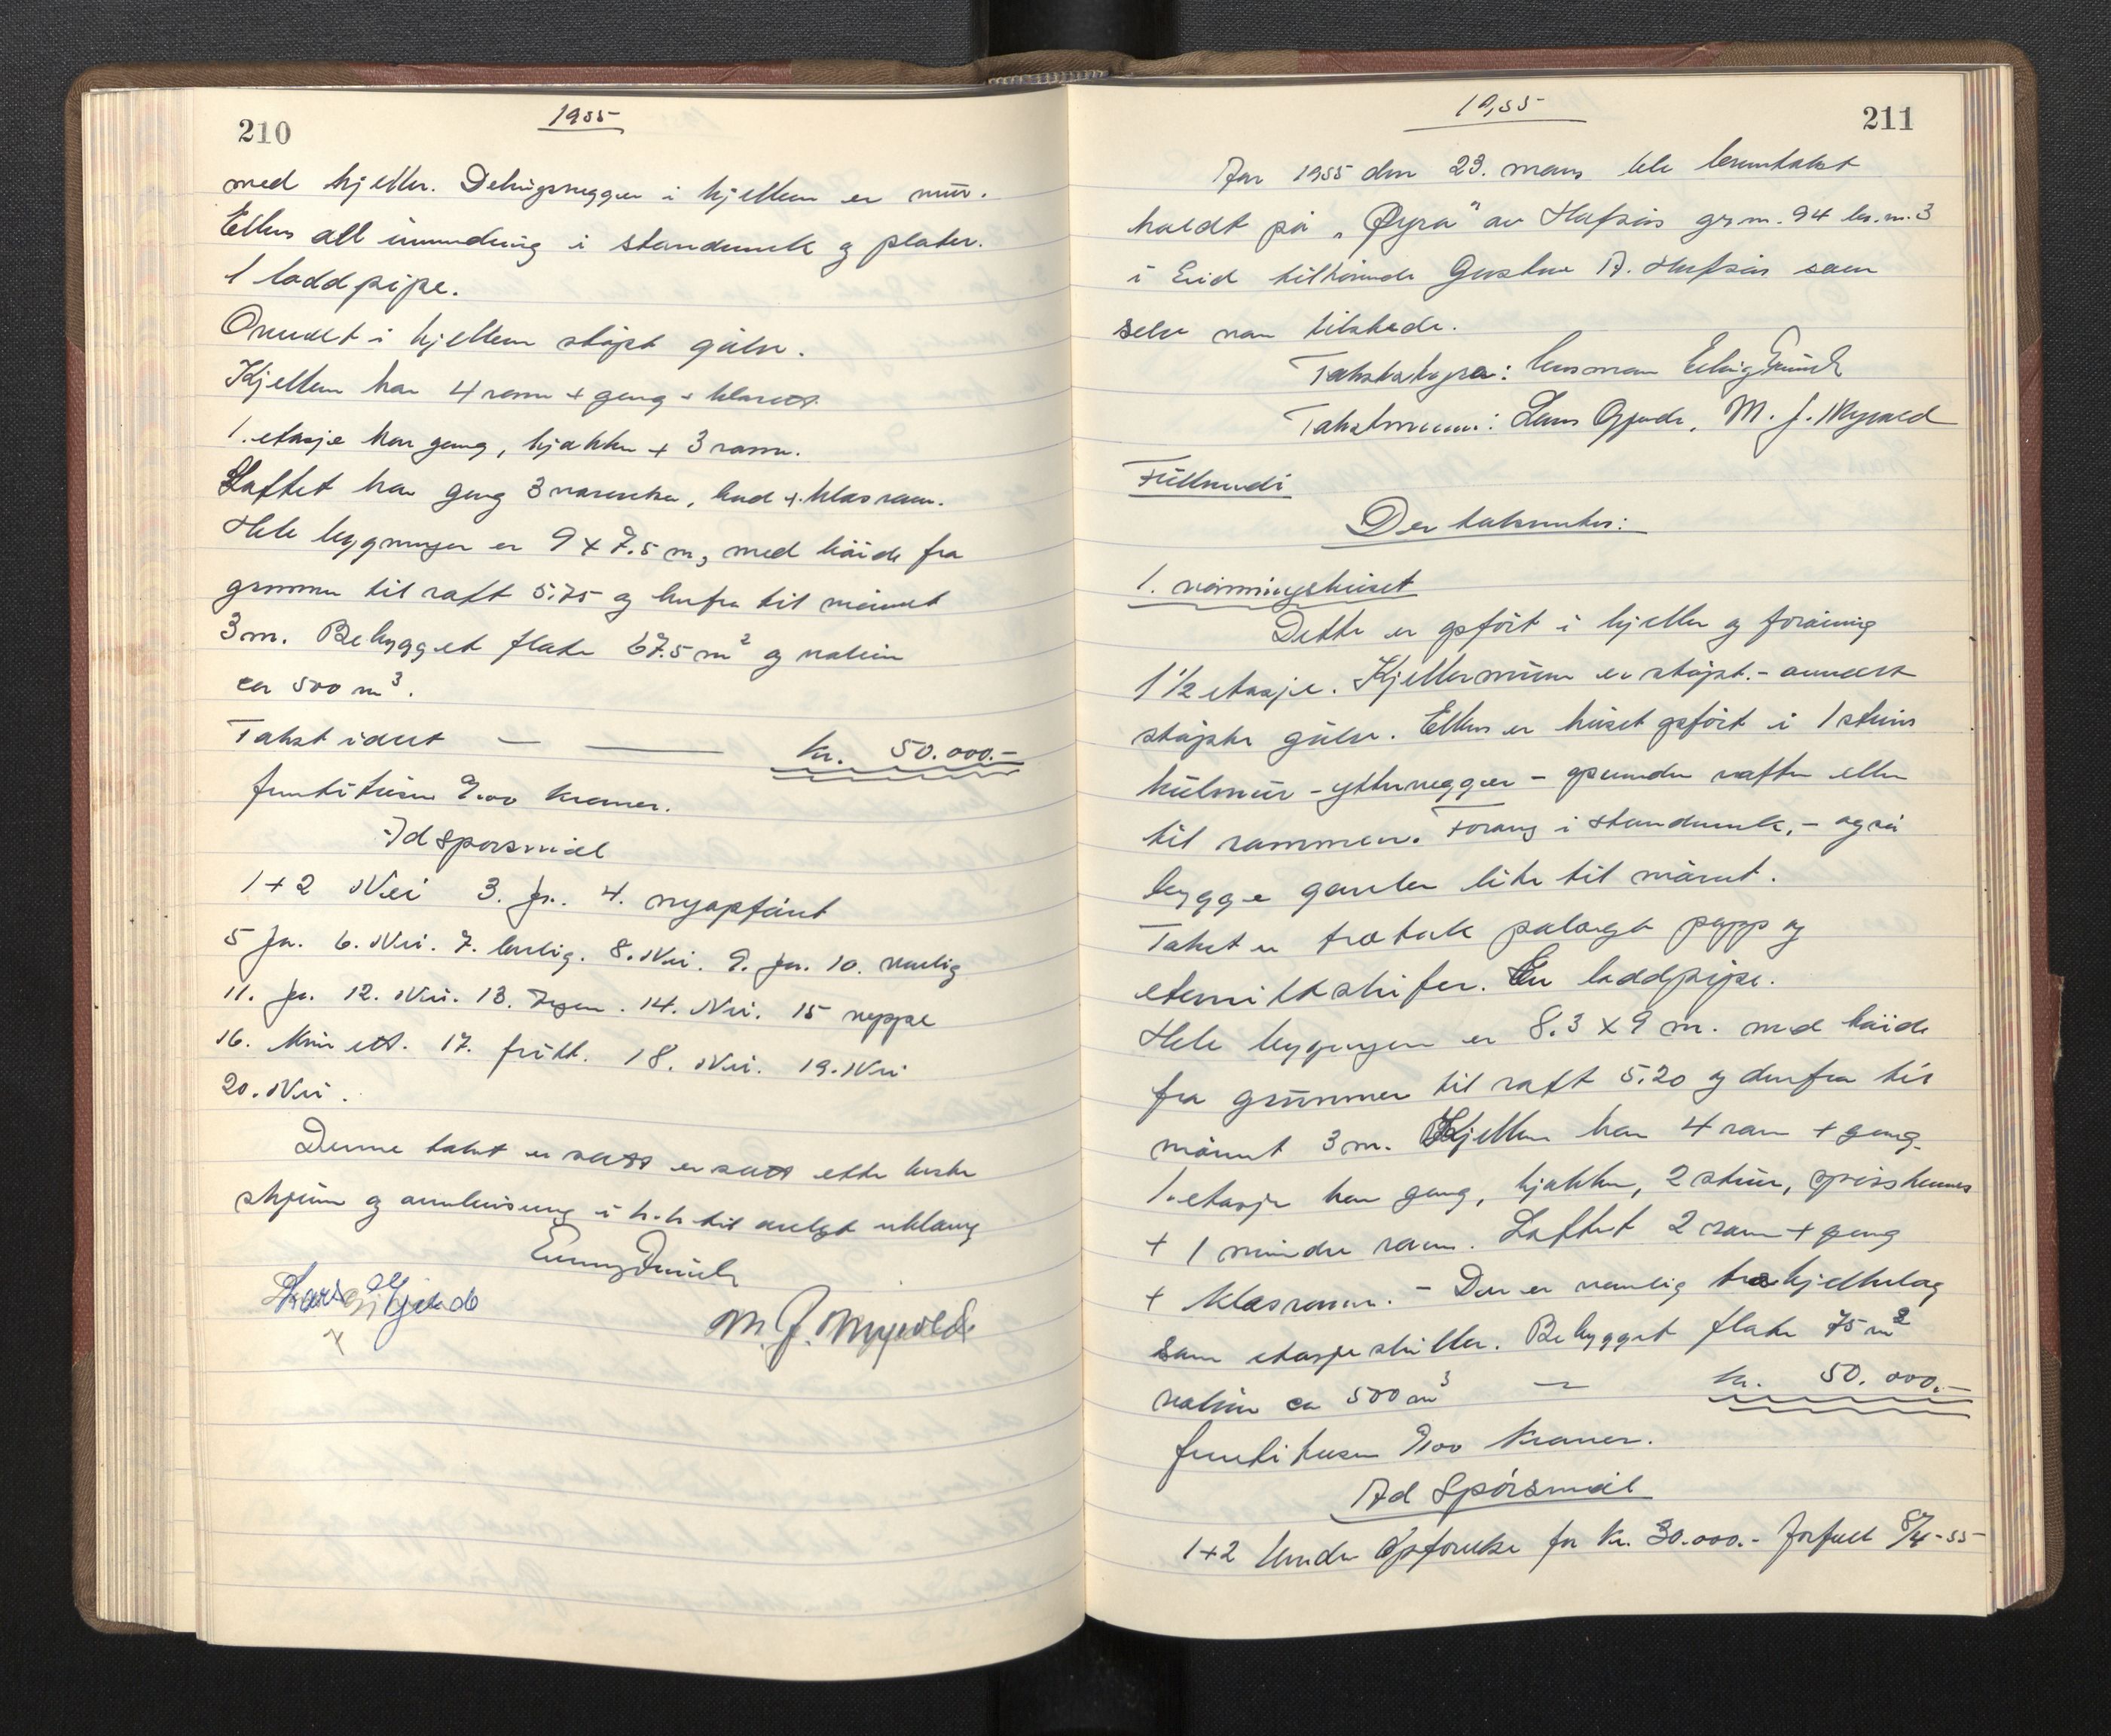 210
1955
med kjeller. Delingsvegger i kjellern er mur.
Ellers all innredning i standerverk og plater.
1 loddpipe.
Grunnet i kjellern støpt gulv.
Kjellern har 4 rom + gang + klosett.
1. etasje har gang, kjøkken + 3 rom.
Loftet har gang 3 soverom, bad + klosrom.
Hele bygningen er 9 x 7.5 m, med høide fra
grunnen til raft 5.75 og herfra til mønet
3 m. Bebygget flate 67.5 m² og volum
ca 500 m³.
Takst idet — — kr. 50.000.-
femtitusen 0/00 kroner.
Ad spørsmål
1+2 Nei 3. Ja. 4. nyoppført
5 Ja. 6. Nei. 7. 8. Nei. 9. Ja. 10. vanlig
11. Ja. 12. Nei. 13. Ingen. 14. Nei. 15 neppe
16. 17. fritt. 18. Nei. 19. Nei
20. Nei.
Denne takst er satt er satt etter beste
skjønn og overbevisning i h.h til avlagt
Lars Gjerde
M. J. Myrvold
211
1955
År 1955 den 23. mars ble branntakst
holdt på „Øyra" av Hafsås gr.nr. 94 br.nr. 3
i Eid tilhørende Gustav A. Hafsås som
selv var tilstede.
Takstbestyrer: lensmann
Takstmenn: Lars Gjerde, M. J. Myrvold
Der takseres:
1. våningshuset
Dette er oppført i kjeller og forøvrig
1½ etasje. Kjellermuren er støpt. -
støpte gulv. Ellers er huset oppført i 1 steins
hulmur - yttervegger - opunder raften eller
til rammen. Forøvrig i standerverk, - også
begge gavler like til mønet.
Taket er tretak pålagt papp og
eternittskifer. En loddpipe.
Hele bygningen er 8.3 x 9 m. med høide
fra grunnen til raft 5.20 og derfra til
mønet 3 m. Kjellern har 4 rom + gang.
1. etasje har gang, kjøkken, 2 stuer,
+ 1 mindre rom. Loftet 2 rom + gang
+ klosrom. - Der er vanlig trebjelkelag
som etasjeskiller. Bebygget flate 75 m²
volum ca 500 m³ — kr. 50.000.-
femtitusen 0/00 kroner.
Ad Spørsmål
1+2 Under Oppførelse for kr. 30.000.- forfall 8/4-55